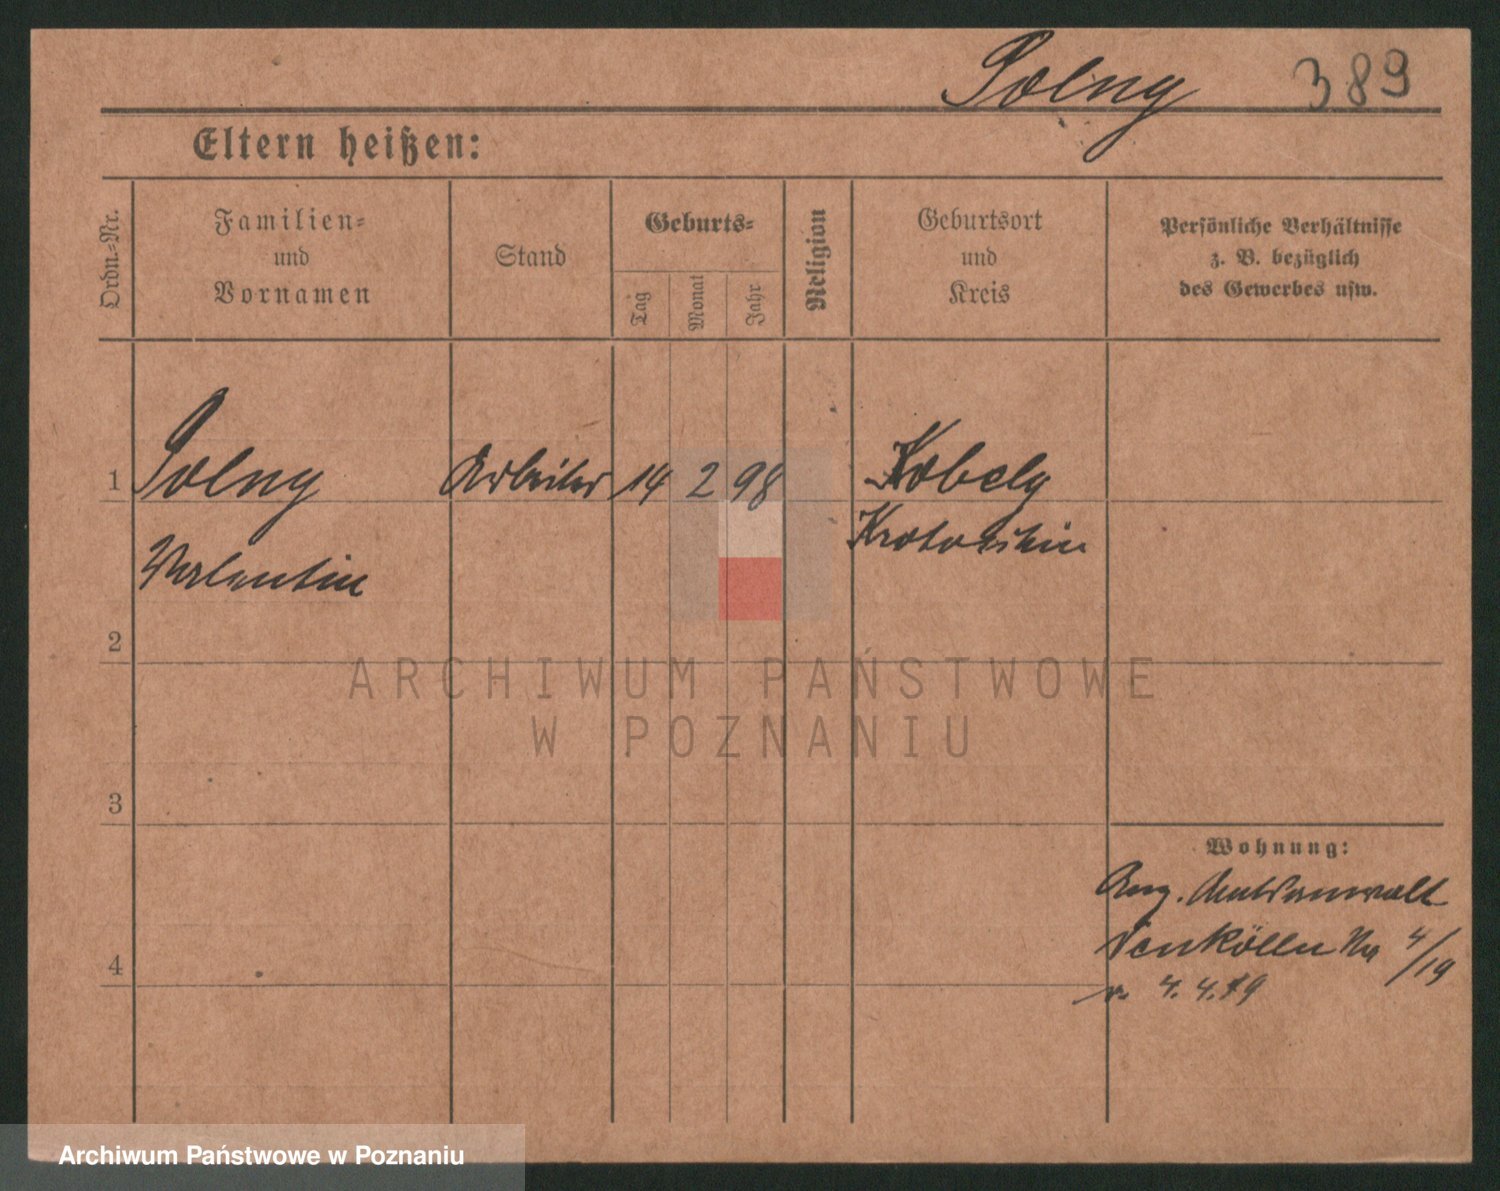 Polny 389
Eltern heißen:
Ordn.=Nr.
Familien=
und
Vornamen
Stand
Geburts=
Tag
Monat
Jahr
Religion
Geburtsort
und
Kreis
Persönliche Verhältnisse
z. B. bezüglich
des Gewerbes usw.
1 Polny Arbeiter 14 2 98 Kobely
Valentin Krotoschin
2
ARCHIWUM PAŃSTWOWE
W POZNANIU
3
Wohnung:
Ang. Amtsanwalt
Neukölln Nr 4/19
4
v. 4.4.19
Archiwum Państwowe w Poznaniu